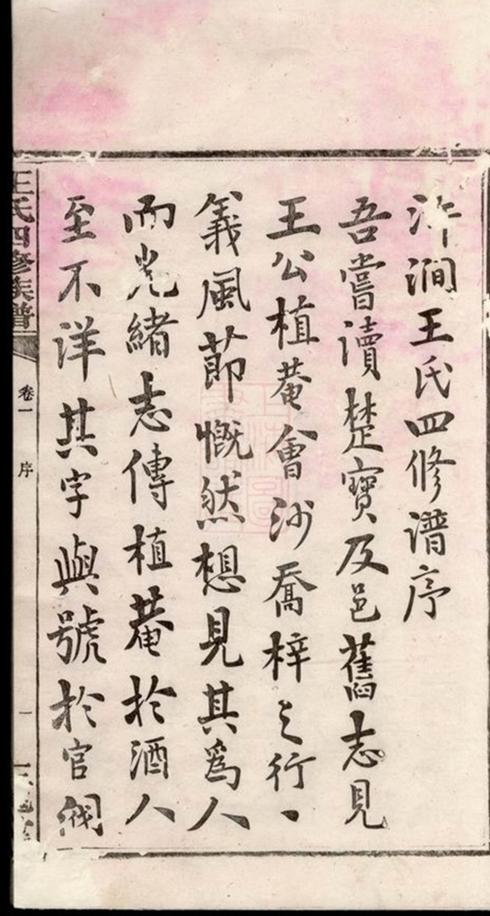 澗王氏四修譜序
吾嘗讀楚寶及邑舊志見
王公植菴會沙喬梓之行、
義風節慨然想見其為人
而光緒志傳植菴於酒人
至不洋其字與號於官閥
王氏四修族譜
卷一
序
一